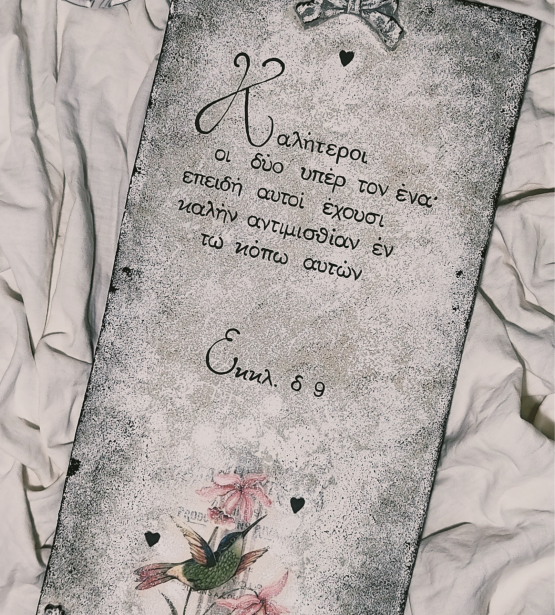 Καλήτεροι
οι δύο υπέρ τον ένα·
επειδή αυτοί έχουσι
καλήν αντιμισθίαν έν
τώ κόπω αυτών.
Εκκλ. δ 9